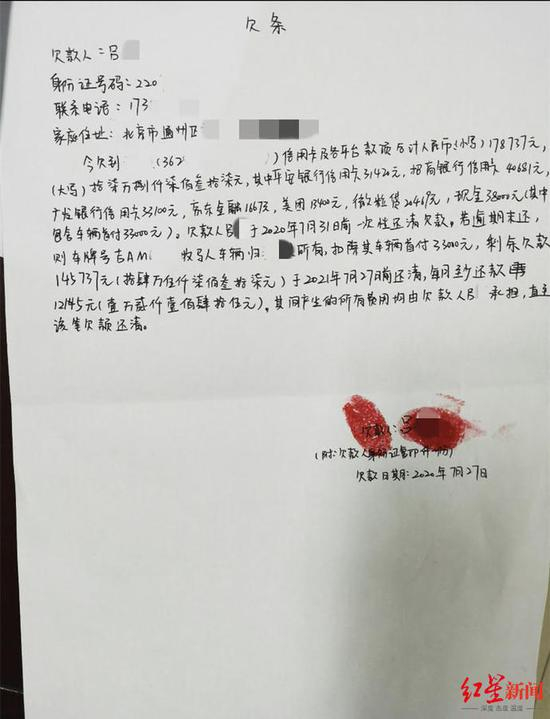 欠条
欠款人：吕
身份证号码：220
联系电话：173
家庭住址：北京市通州区
今欠到 (362 ）信用卡及各平台款项合计人民币（小写）178737元，
（大写）拾柒万捌仟柒佰叁拾柒元，其中平安银行信用卡31420元，招商银行信用卡40681元，
广发银行信用卡33100元，京东金融1667元，美团13400元，微粒贷20469元，现金38000元（其中
包含车辆首付33000元）。欠款人吕 于2020年7月31日前一次性还清欠款。若逾期未还，
则车牌号吉AM 收引人车辆归 所有，扣除其车辆首付33000元，剩余欠款
145737元（拾肆万伍仟柒佰叁拾柒元）于2021年7月27日前还清，每月至少还款
12145元（壹万贰仟壹佰肆拾伍元），其间产生的所有费用均由欠款人吕 承担，直至
该笔欠额还清。
欠款人：吕
（附：欠款人身份证复印件一份）
欠款日期：2020年7月27日
红星新闻
深度 态度 温度